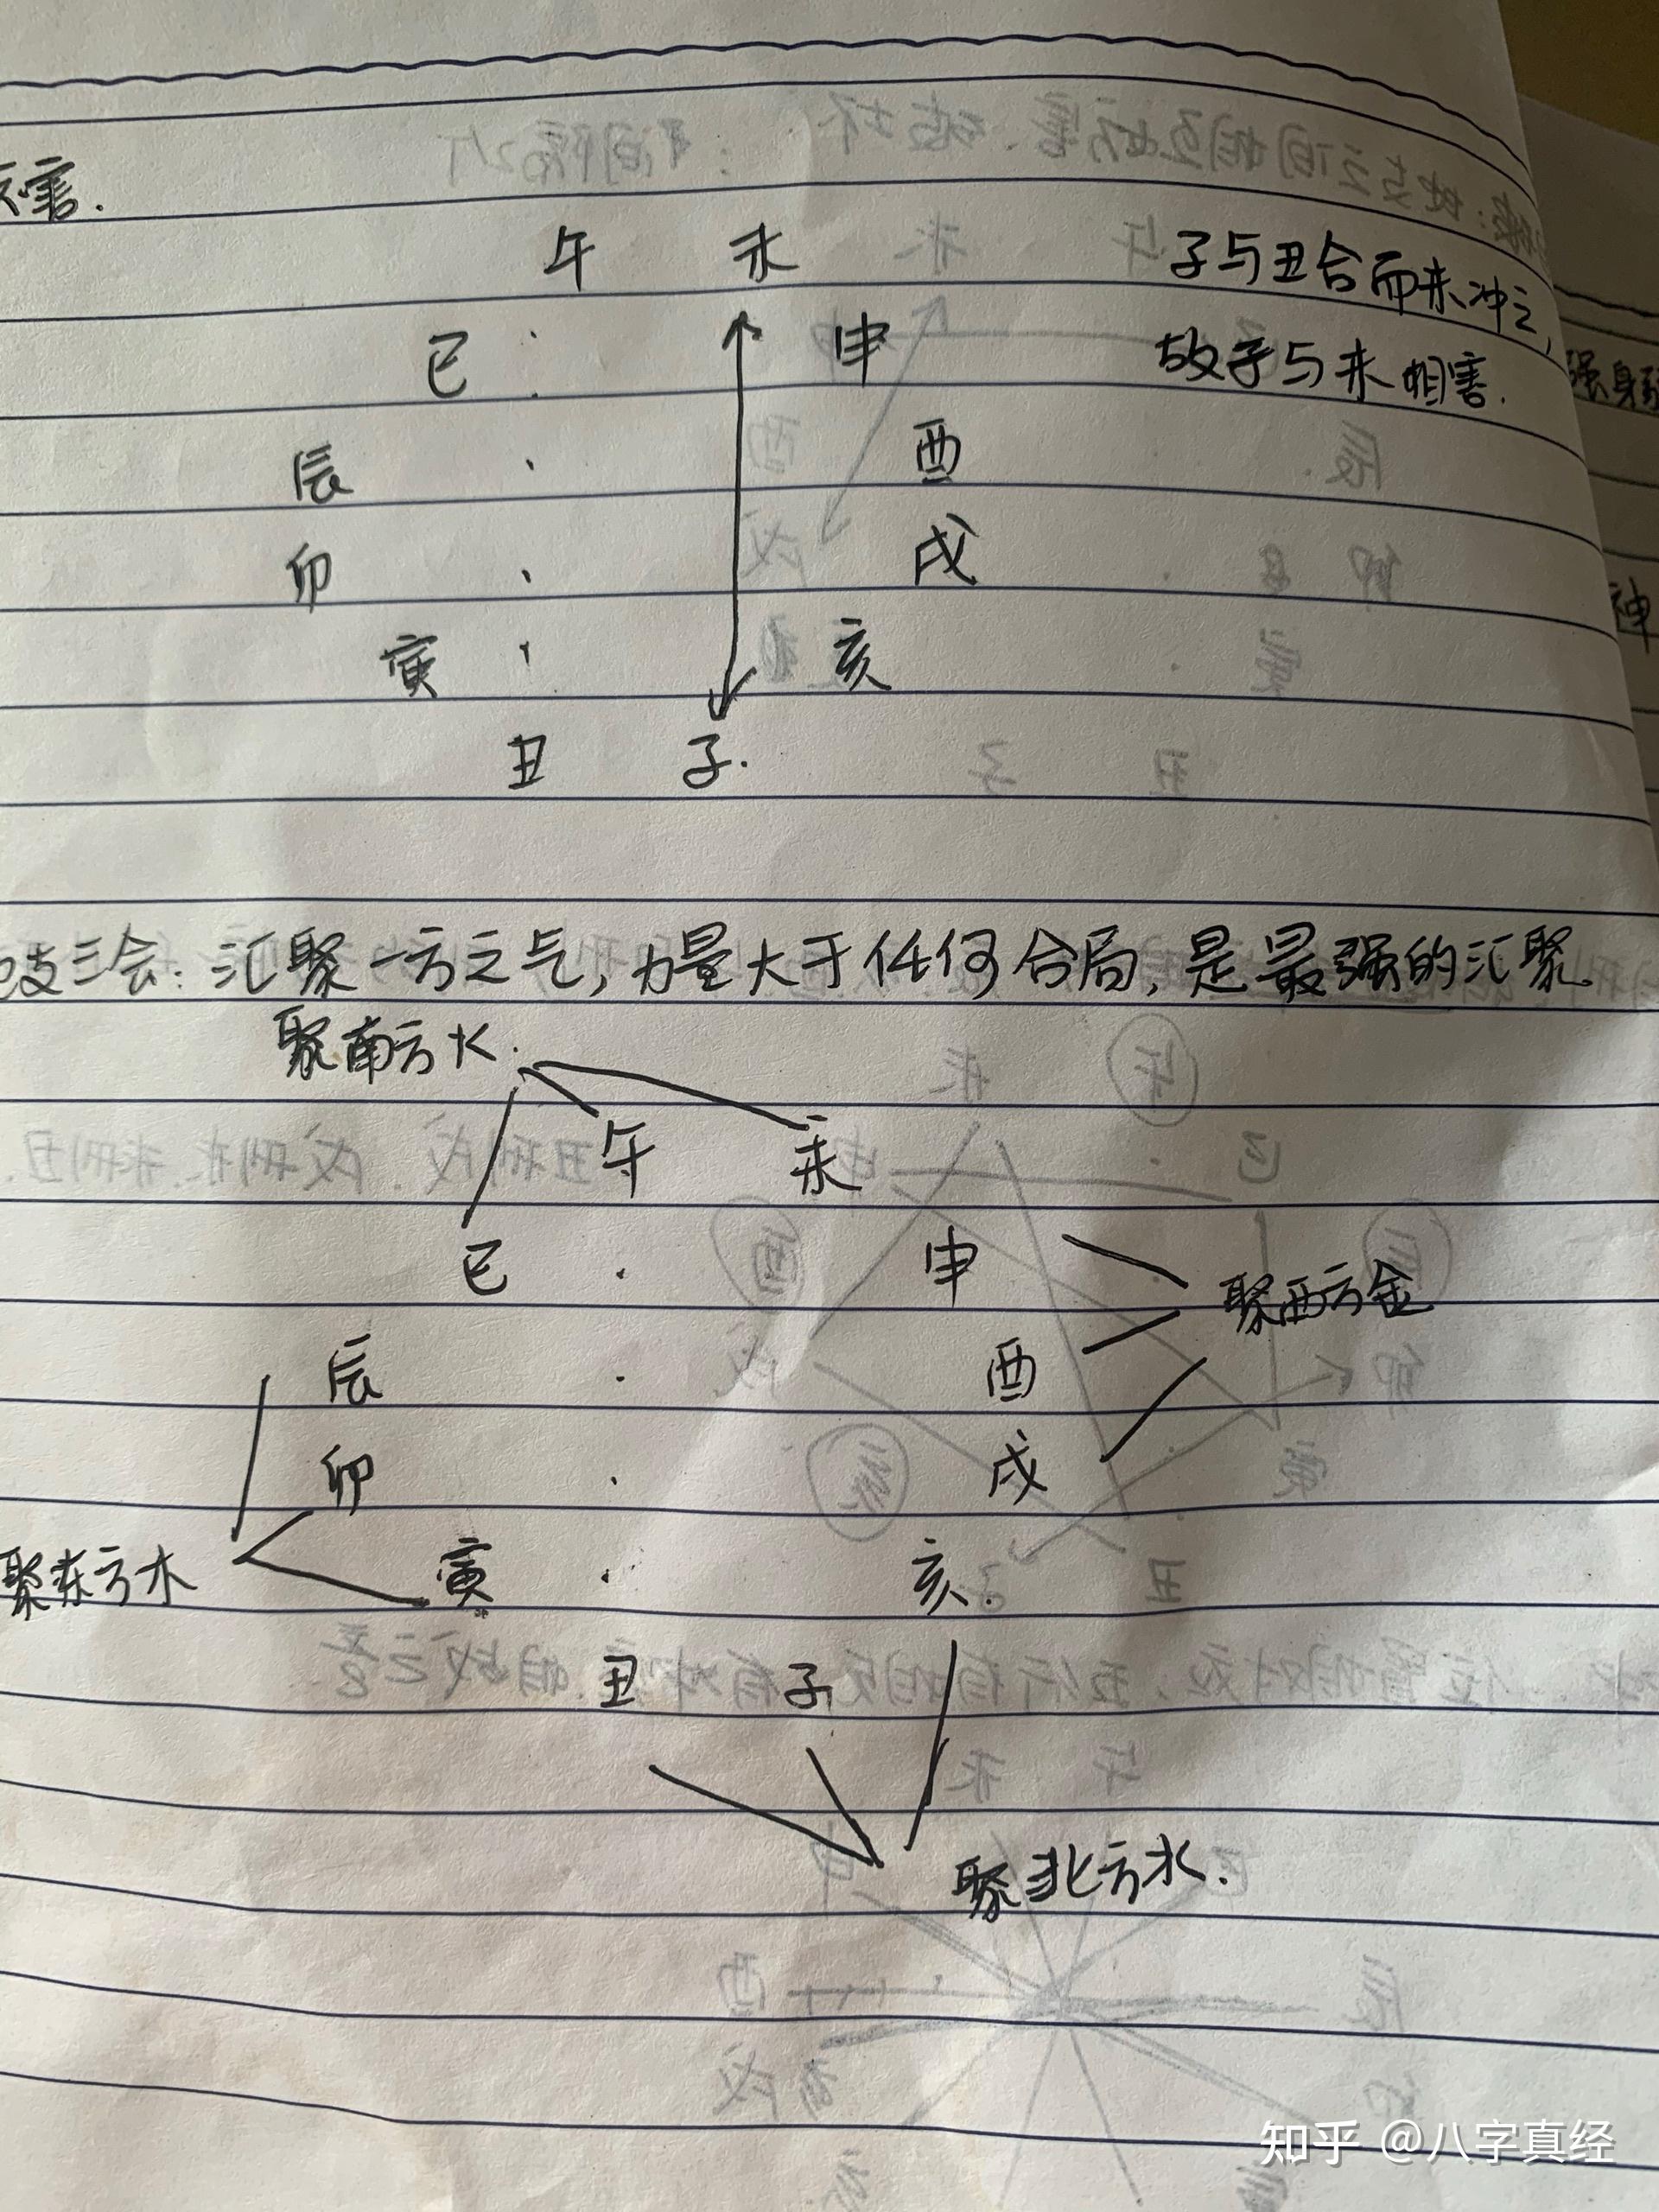 害.
午 未 子与丑合而未冲之,
巳 申 故子与未相害.
辰 酉
卯 戌
寅 亥
丑 子.
支三会: 汇聚一方之气, 力量大于任何合局, 是最强的汇聚.
聚南方火.
午 未
巳 申 聚西方金
辰 酉
卯 戌
聚东方木 寅 亥.
丑 子
聚北方水.
强身
神
知乎 @八字真经